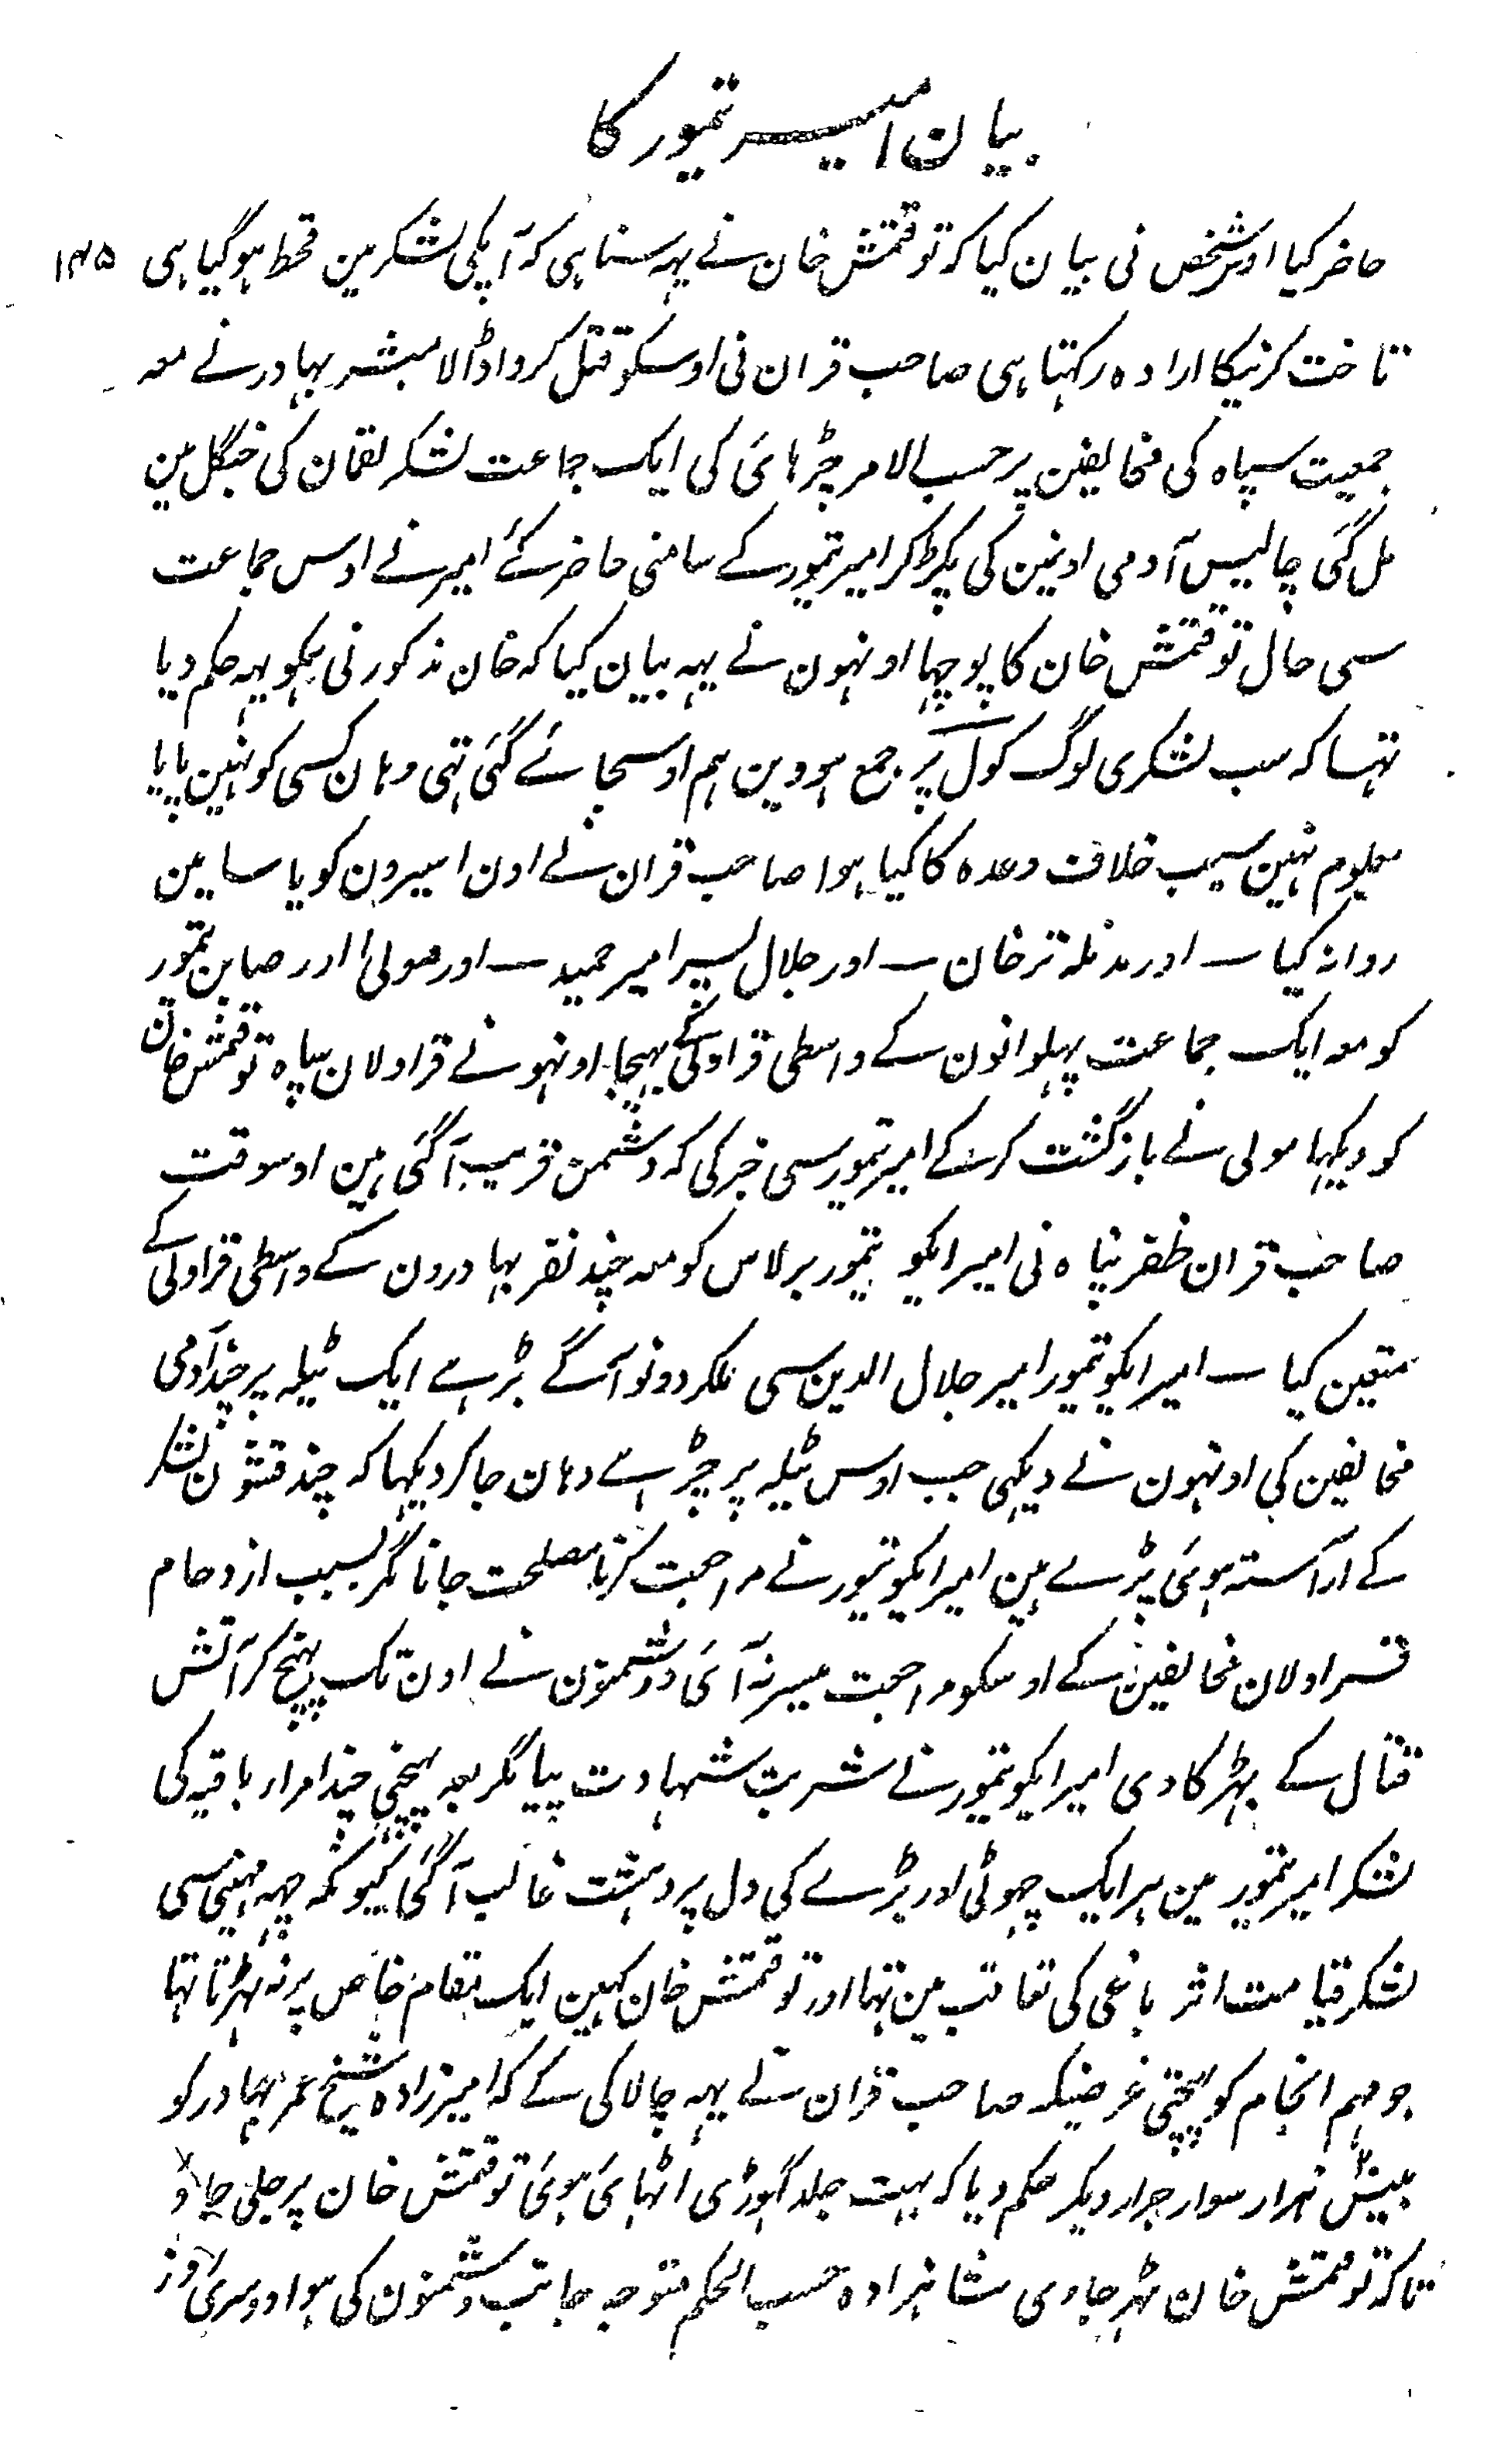 بیان امیر تیمور کا
حاضر کیا اوس شخص نی بیان کیا کہ توقتمش خان نے یہہ سنا ہی کہ آپکی لشکر مین قحط ہو گیا ہی ۱۴۵
تاخت کرنیکا ارادہ رکہتا ہی صاحب قران نی اوسکو قتل کروا ڈالا مبشر بہادر نے معہ
جمعیت سپاہ کی مخالفین پر حسب الامر چڑہائی کی ایک جماعت لشکر لقمان کی جنگل مین
مل گئی چالیس آدمی اونین کی پکڑ کر امیر تیمور کے سامنی حاضر کئے امیر نے اوس جماعت
سی حال توقتمش خان کا پوچہا اونہون نے یہہ بیان کیا کہ خان مذکور نی ہمکو یہہ حکم دیا
تہا کہ سب لشکری لوگ کول پر جمع ہووین ہم اوسجائے گئی تہی وہان کسی کو نہین پایا
معلوم نہین سبب خلاف وعدہ کا کیا ہوا صاحب قران نے اون اسیرون کو یاسا مین
روانہ کیا ـ اور مذلہ ترخان ـ اور جلال پسر امیر حمید ـ اور مولی اور صاین تیمور
کو معہ ایک جماعت پہلوانون کے واسطی قراولی کے بہیجا اونہو نے قراولان سپاہ توقتمش خان
کو دیکہا مولی نے بازگشت کر کے امیر تیمور سی خبر کی کہ دشمن قریب آگئی ہین اوسوقت
صاحب قران ظفر پناہ نی امیر ایکو تیمور برلاس کو معہ چند نفر بہادرون کے واسطی قراولی کے
متعین کیا ـ امیر ایکو تیمور امیر جلال الدین سی ملکر دونو آگے بڑہے ایک ٹیلہ پر چند آدمی
مخالفین کی اونہون نے دیکہی جب اوس ٹیلہ پر چڑہے وہان جا کر دیکہا کہ چند قشون لشکر
کے آراستہ ہوئی پڑے ہین امیر ایکو تیمور نے مراجعت کرنا مصلحت جانا مگر بسبب ازدحام
قراولان مخالفین کے اوسکو مراجعت میسر نہ آئی دشمنون نے اون تک پہنچ کر آتش
قتال کے بہڑکا دی امیر ایکو تیمور نے شربت شہادت پیا مگر بعد پہنچنی چند امراء باقیہ کی
لشکر امیر تیمور مین ہر ایک چہوٹی اور بڑے کی دل پر دہشت غالب آگئی کیونکہ چہہ مہینی سی
لشکر قیامت اثر باغی کی تعاقب مین تہا اور توقتمش خان کہین ایک مقام خاص پر نہ ٹہرتا تہا
جو مہم انجام کو پہنچتی غرضیکہ صاحب قران نے یہہ چالاکی کے کہ امیر زادہ شیخ عمر بہادر کو
بیس ہزار سوار جرار دیکر حکم دیا کہ بہت جلد گہوڑی اٹہائی ہوئی توقتمش خان پر چلی جاؤ
تاکہ توقتمش خان ٹہر جاوی شاہزادہ حسب الحکم متوجہ جانب دشمنون کی ہوا دوسری روز